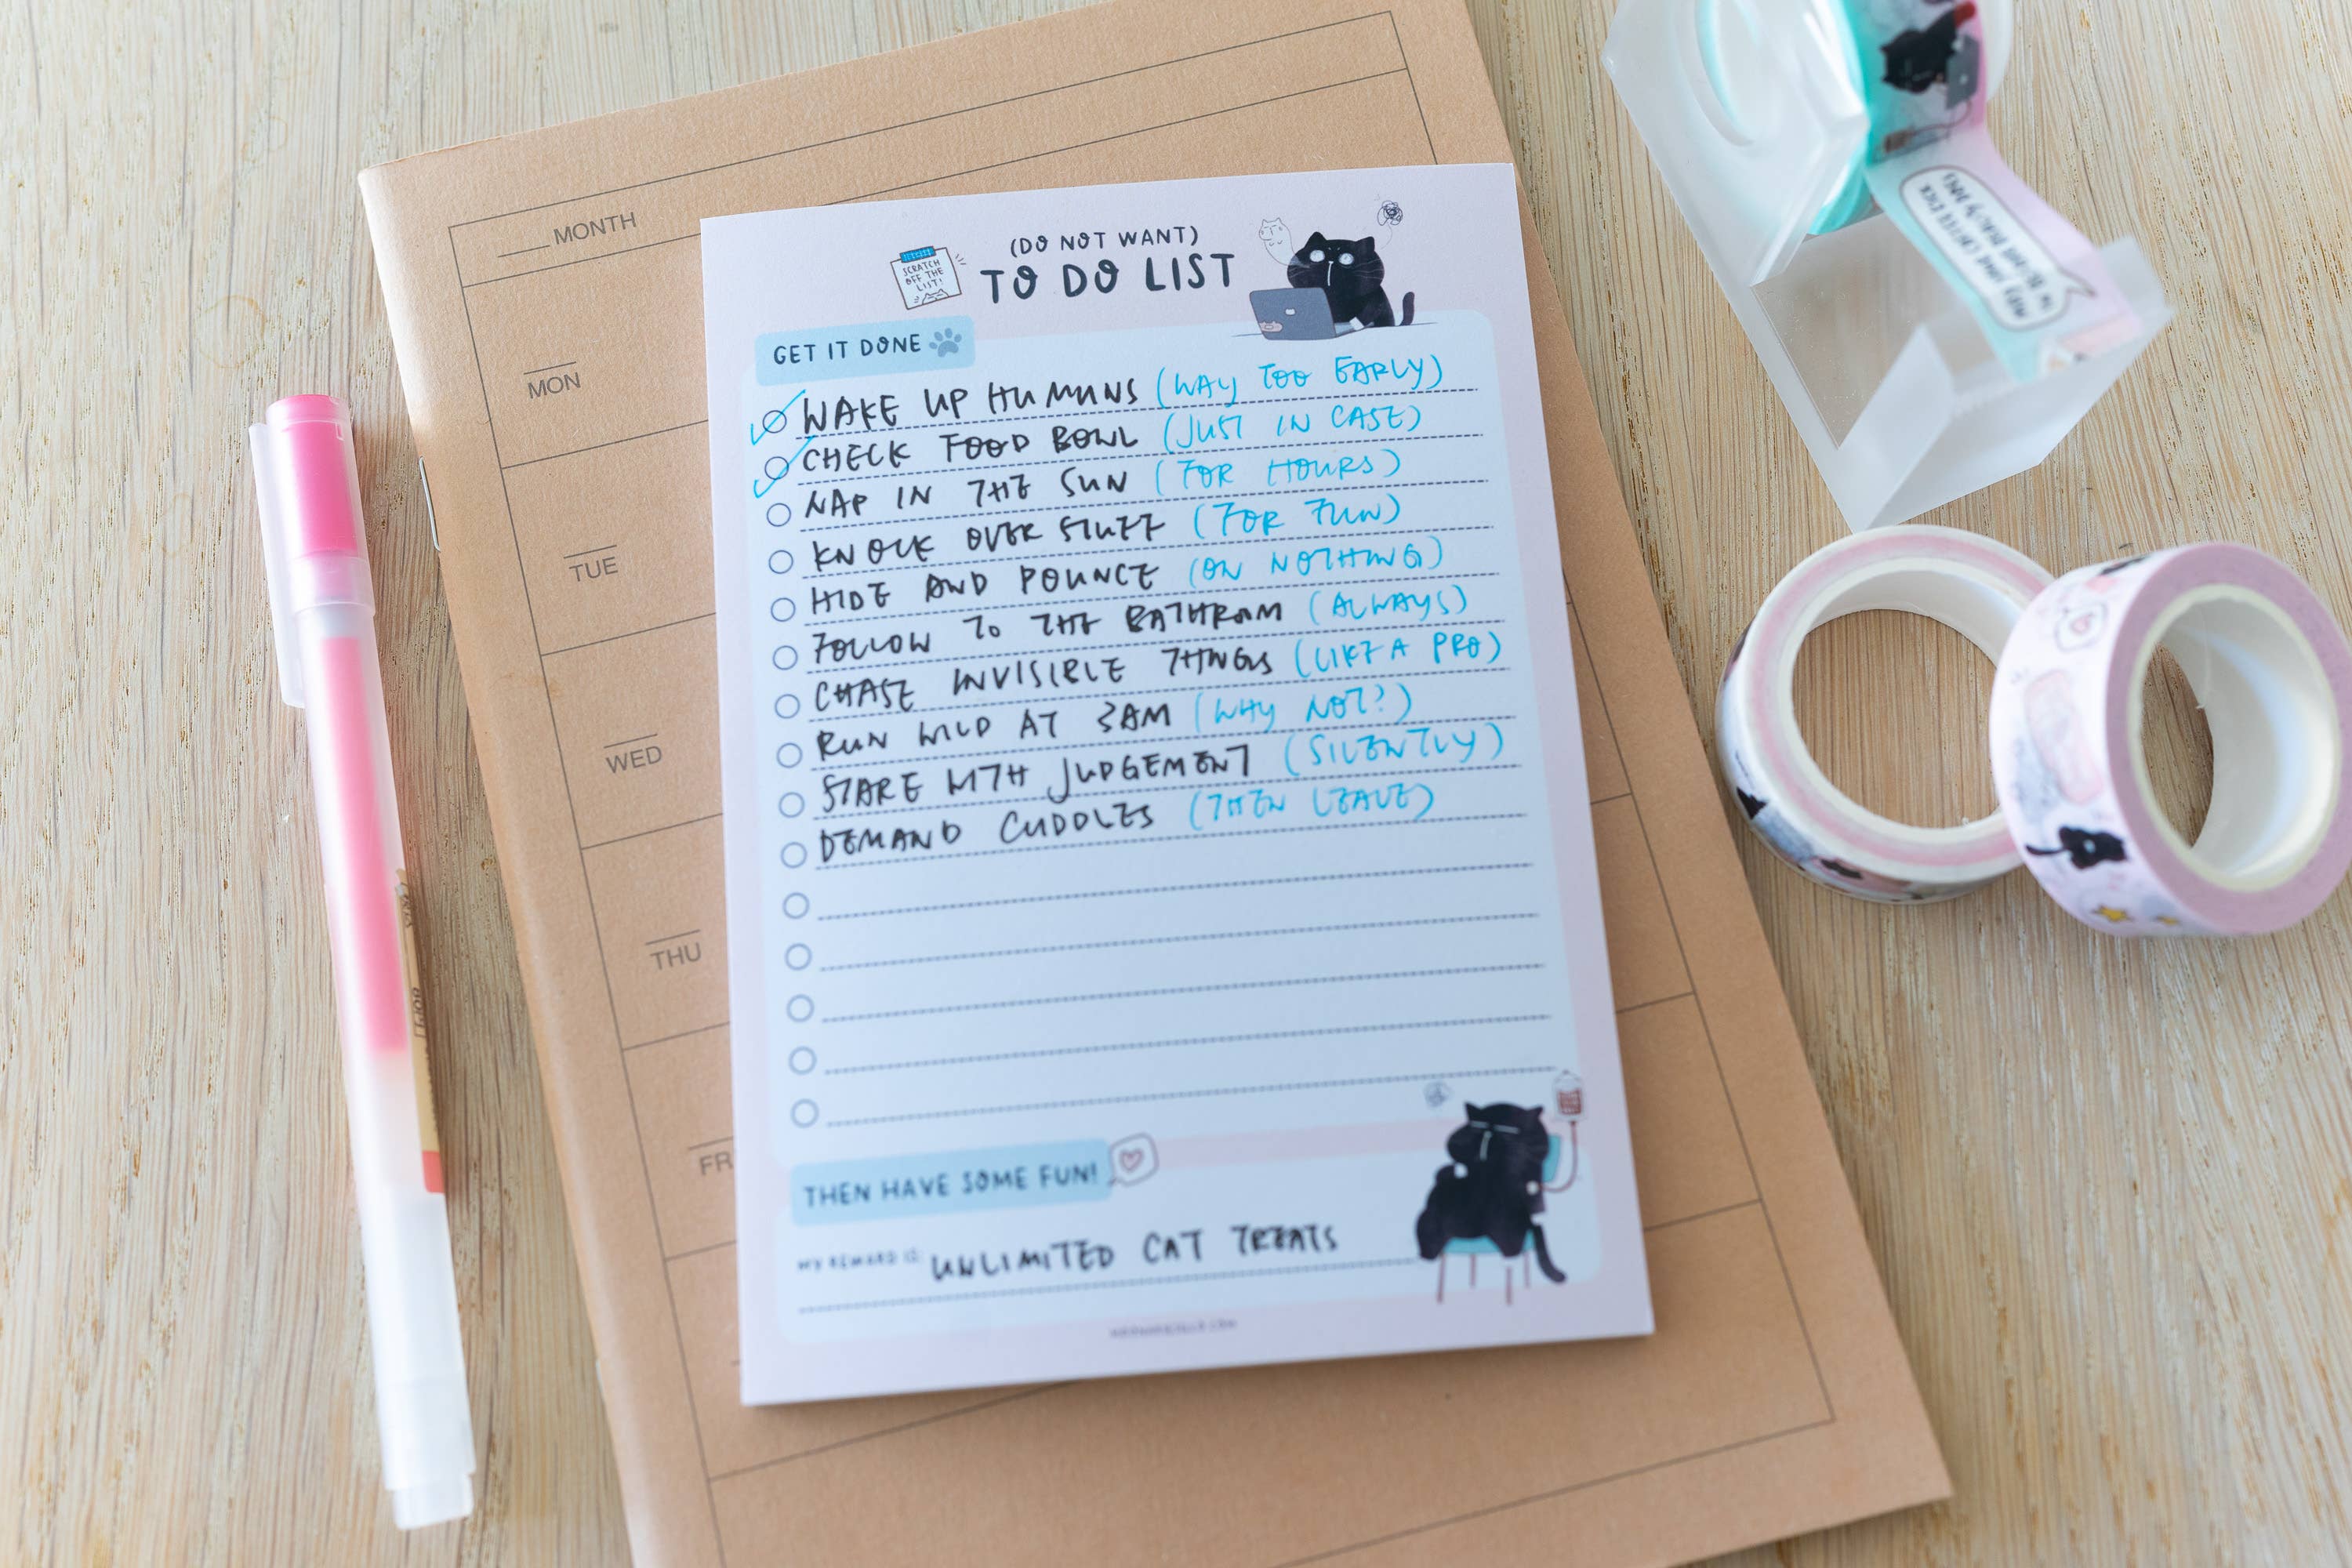 MONTH
MON
TUE
WED
THU
FR
(DO NOT WANT)
TO DO LIST
SCRATCH
OFF THE
LIST!
GET IT DONE
WAKE UP HUMANS (WAY TOO EARLY)
CHECK FOOD BOWL (JUST IN CASE)
NAP IN THE SUN (FOR HOURS)
KNOCK OVER STUFF (FOR FUN)
HIDE AND POUNCE (ON NOTHING)
FOLLOW TO THE BATHROOM (ALWAYS)
CHASE INVISIBLE THINGS (LIKE A PRO)
RUN WILD AT 3AM (WHY NOT?)
STARE WITH JUDGEMENT (SILENTLY)
DEMAND CUDDLES (THEN LEAVE)
THEN HAVE SOME FUN!
MY REWARD IS: UNLIMITED CAT TREATS